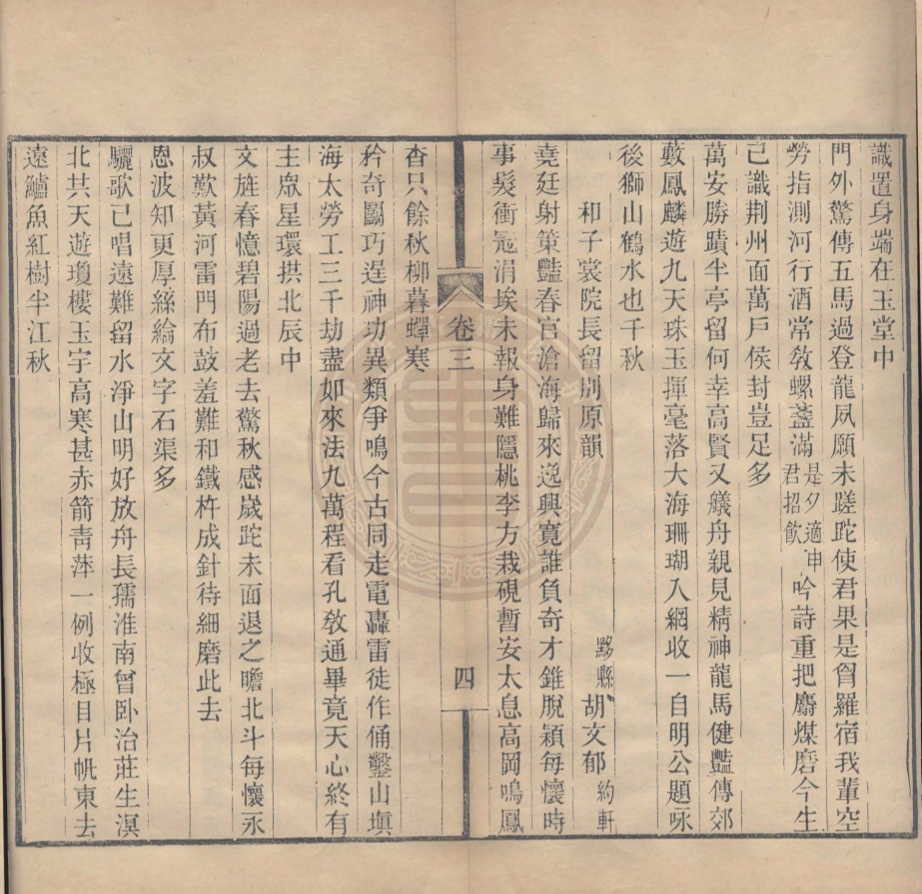 識置身端在玉堂中
門外驚傳五馬過登龍夙願未蹉跎使君果是胷羅宿我輩空
勞指測河行酒常敎螺盞滿是夕適申君招飲吟詩重把麝煤磨今生
己識荆州面萬戶侯封豈足多
萬安勝蹟半亭留何幸高賢又艤舟親見精神龍馬健豔傳郊
藪鳳麟遊九天珠玉揮毫落大海珊瑚入網收一自明公題詠
後獅山鶴水也千秋
和子裳院長留別原韻
黟縣胡文郁約軒
堯廷射策豔春官滄海歸來逸興寬誰負奇才錐脫穎每懷時
事髮衝冠涓埃未報身難隱桃李方栽硯暫安太息高岡鳴鳳
卷三
四
杳只餘秋柳暮蟬寒
矜奇鬭巧逞神功異類爭鳴今古同走電轟雷徒作俑鑿山塡
海太勞工三千劫盡如來法九萬程看孔敎通畢竟天心終有
主眾星環拱北辰中
文旌春憶碧陽過老去驚秋感嵗跎未面退之瞻北斗每懷永
叔歎黃河雷門布鼓羞難和鐵杵成針待細磨此去
恩波知更厚絲綸文字石渠多
驪歌已唱遠難留水淨山明好放舟長孺淮南曾卧治莊生溟
北共天遊瓊樓玉宇高寒甚赤箭靑萍一例收極目片帆東去
遠鱸魚紅樹半江秋